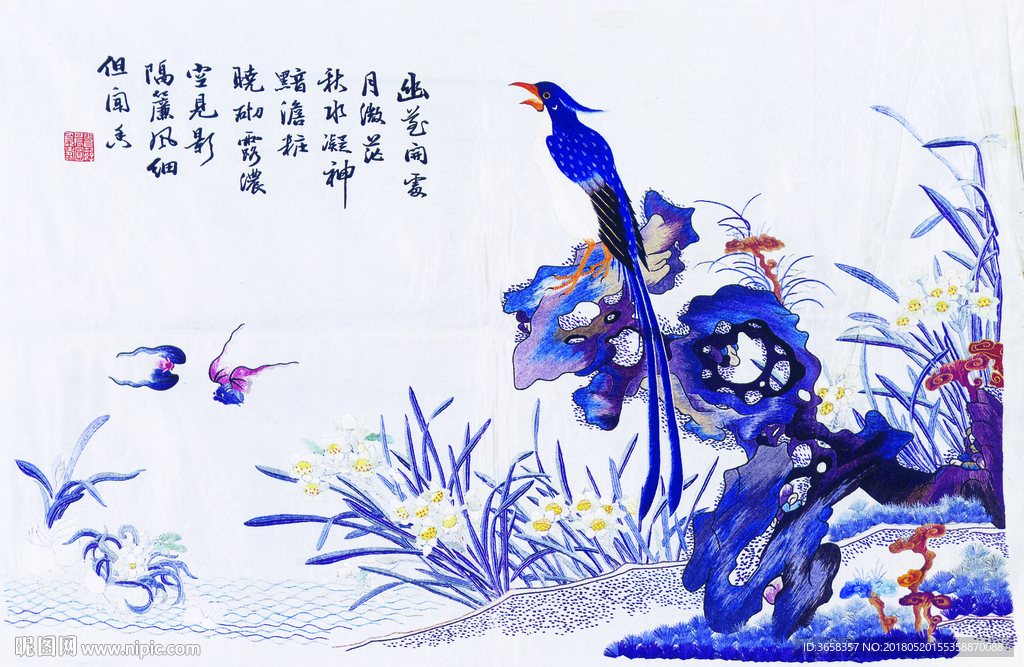 幽花開處
月微茫
秋水凝神
黯澹粧
曉砌露濃
空見影
隔簾風細
但聞香
昵图网 www.nipic.com
ID:3658357 NO:20180520155358870088